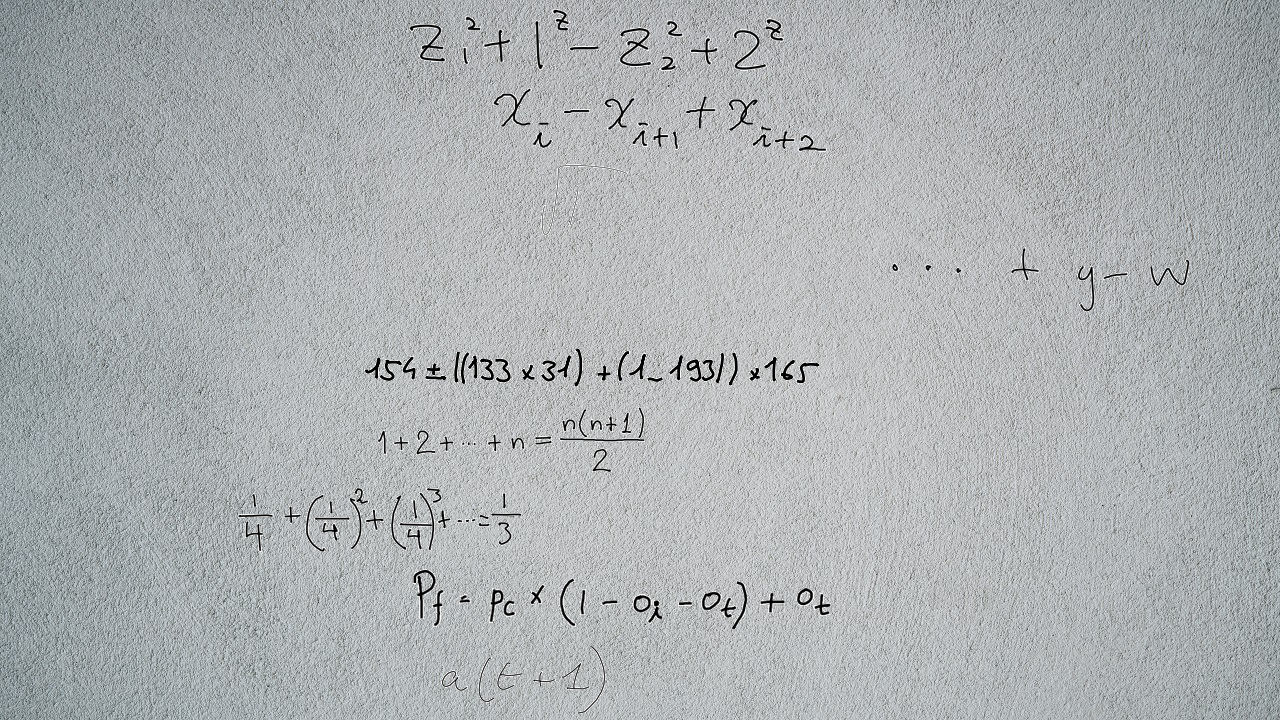 z₁² + 1ᶻ − z₂² + 2ᶻ
xᵢ − xᵢ₊₁ + xᵢ₊₂
... + y − w
154 ± ((133 × 31) + (1 − 193)) × 165
1 + 2 + ⋯ + n = n(n+1)/2
1/4 + (1/4)² + (1/4)³ + ⋯ = 1/3
P_f = p_c × (1 − o_i − o_t) + o_t
a(t+1)